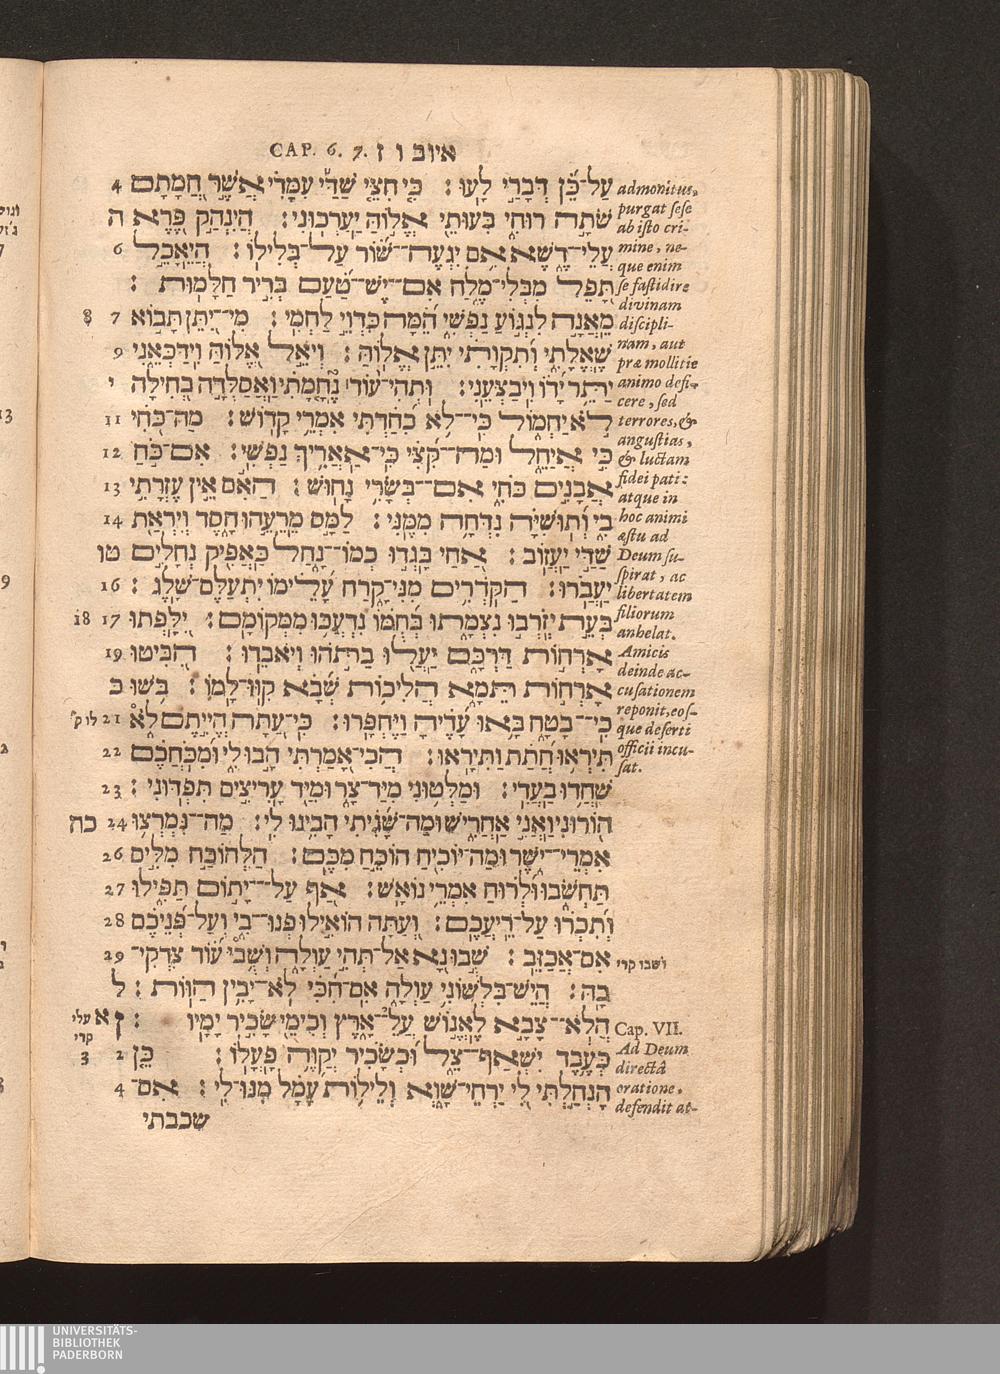 CAP. 6. 7. איוב ו ז
עַל־כֵּן דְּבָרַי לָעוּ׃ כִּי חִצֵּי שַׁדַּי עִמָּדִי אֲשֶׁר חֲמָתָם 4
שֹׁתָה רוּחִי בִּעוּתֵי אֱלוֹהַּ יַעַרְכוּנִי׃ הֲיִנְהַק פֶּרֶא ה
עֲלֵי־דֶשֶׁא אִם יִגְעֶה־שּׁוֹר עַל־בְּלִילוֹ׃ הֲיֵאָכֵל 6
תָּפֵל מִבְּלִי־מֶלַח אִם־יֶשׁ־טַעַם בְּרִיר חַלָּמוּת׃
מֵאֲנָה לִנְגּוֹעַ נַפְשִׁי הֵמָּה כִּדְוֵי לַחְמִי׃ מִי־יִתֵּן תָּבוֹא 7 8
שֶׁאֱלָתִי וְתִקְוָתִי יִתֵּן אֱלוֹהַּ׃ וְיֹאֵל אֱלוֹהַּ וִידַכְּאֵנִי 9
יַתֵּר יָדוֹ וִיבַצְּעֵנִי׃ וּתְהִי־עוֹד נֶחָמָתִי וַאֲסַלְּדָה בְחִילָה י
לֹא יַחְמוֹל כִּי־לֹא כִחַדְתִּי אִמְרֵי קָדוֹשׁ׃ מַה־כֹּחִי 11
כִּי אֲיַחֵל וּמַה־קִּצִּי כִּי־אַאֲרִיךְ נַפְשִׁי׃ אִם־כֹּחַ 12
אֲבָנִים כֹּחִי אִם־בְּשָׂרִי נָחוּשׁ׃ הַאִם אֵין עֶזְרָתִי 13
בִי וְתוּשִׁיָּה נִדְּחָה מִמֶּנִּי׃ לַמָּס מֵרֵעֵהוּ חָסֶד וְיִרְאַת 14
שַׁדַּי יַעֲזוֹב׃ אַחַי בָּגְדוּ כְמוֹ־נָחַל כַּאֲפִיק נְחָלִים טו
יַעֲבֹרוּ׃ הַקֹּדְרִים מִנִּי־קָרַח עָלֵימוֹ יִתְעַלֶּם־שָׁלֶג׃ 16
בְּעֵת יְזֹרְבוּ נִצְמָתוּ בְּחֻמּוֹ נִדְעֲכוּ מִמְּקוֹמָם׃ יִלָּפְתוּ 17 18
אָרְחוֹת דַּרְכָּם יַעֲלוּ בַתֹּהוּ וְיֹאבֵדוּ׃ הִבִּיטוּ 19
אָרְחוֹת תֵּמָא הֲלִיכוֹת שְׁבָא קִוּוּ־לָמוֹ׃ בֹּשׁוּ כ
כִּי־בָטָח בָּאוּ עָדֶיהָ וַיֶּחְפָּרוּ׃ כִּי־עַתָּה הֱיִיתֶם לֹא 21 לו ק׳
תִּירְאוּ חֲתַת וַתִּירָאוּ׃ הֲכִי־אָמַרְתִּי הָבוּ לִי וּמִכֹּחֲכֶם 22
שִׁחֲדוּ בַעֲדִי׃ וּמַלְּטוּנִי מִיַּד־צָר וּמִיַּד עָרִיצִים תִּפְדּוּנִי׃ 23
הוֹרוּנִי וַאֲנִי אַחֲרִישׁ וּמַה־שָּׁגִיתִי הָבִינוּ לִי׃ מַה־נִּמְרְצוּ 24 כה
אִמְרֵי־יֹשֶׁר וּמַה־יּוֹכִיחַ הוֹכֵחַ מִכֶּם׃ הַלְהוֹכַח מִלִּים 26
תַּחְשֹׁבוּ וּלְרוּחַ אִמְרֵי נוֹאָשׁ׃ אַף עַל־יָתוֹם תַּפִּילוּ 27
וְתִכְרוּ עַל־רֵיעֲכֶם׃ וְעַתָּה הוֹאִילוּ פְנוּ־בִי וְעַל־פְּנֵיכֶם 28
אִם־אֲכַזֵּב׃ שֻׁבוּ נָא אַל־תְּהִי עַוְלָה וְשֻׁבִי עוֹד צִדְקִי־ 29
ושבו קרי
בָהּ׃ הֲיֵשׁ־בִּלְשׁוֹנִי עַוְלָה אִם־חִכִּי לֹא־יָבִין הַוּוֹת׃ ל
הֲלֹא־צָבָא לֶאֱנוֹשׁ עֲלֵ־אָרֶץ וְכִימֵי שָׂכִיר יָמָיו׃ ז א עלי קרי
כְּעֶבֶד יִשְׁאַף־צֵל וּכְשָׂכִיר יְקַוֶּה פָעֳלוֹ׃ כֵּן 2 3
הָנְחַלְתִּי לִי יַרְחֵי־שָׁוְא וְלֵילוֹת עָמָל מִנּוּ־לִי׃ אִם־ 4
שכבתי
admonitus,
purgat sese
ab isto cri-
mine, ne-
que enim
se fastidire
divinam
discipli-
nam, aut
præ mollitie
animo defi-
cere, sed
terrores, &
angustias,
& luctam
fidei pati:
atque in
hoc animi
æstu ad
Deum su-
spirat, ac
libertatem
filiorum
anhelat.
Amicis
deinde ac-
cusationem
reponit, eos-
que deserti
officii incu-
sat.
Cap. VII.
Ad Deum
directâ
oratione,
defendit at-
UNIVERSITÄTS-
BIBLIOTHEK
PADERBORN